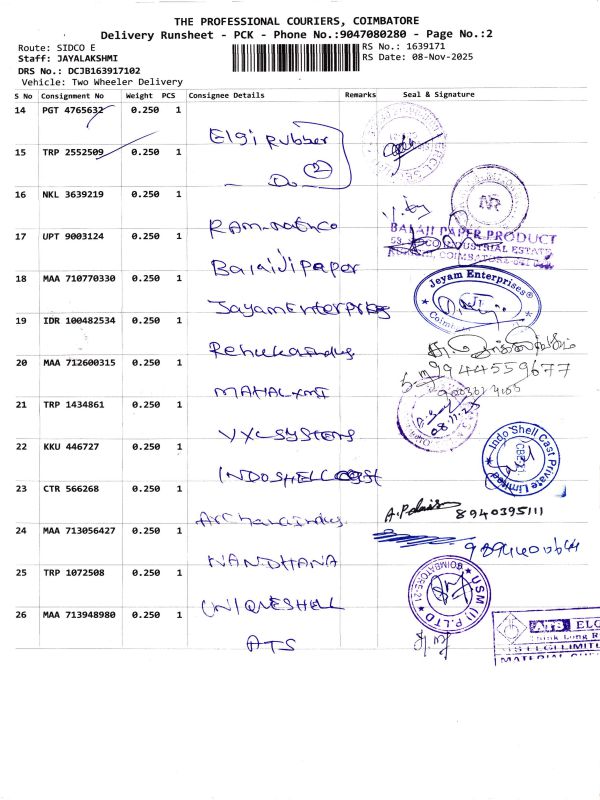 THE PROFESSIONAL COURIERS, COIMBATORE
Delivery Runsheet - PCK - Phone No.:9047080280 - Page No.:2
Route: SIDCO E
RS No.: 1639171
Staff: JAYALAKSHMI
RS Date: 08-Nov-2025
DRS No.: DCJB163917102
Vehicle: Two Wheeler Delivery
S No Consignment No Weight PCS Consignee Details Remarks Seal & Signature
14 PGT 4765632 0.250 1
Elgi Rubber
15 TRP 2552509 0.250 1
2
- Do -
16 NKL 3639219 0.250 1
NR
Ram-nathco
17 UPT 9003124 0.250 1
BALAJI PAPER PRODUCT
Balaji paper
18 MAA 710770330 0.250 1
Jeyam Enterprises®
Jayam Enterprises
19 IDR 100482534 0.250 1
Renuka indus
20 MAA 712600315 0.250 1
9944559677
MAHALXMI
21 TRP 1434861 0.250 1
08.11.25
VXL SYSTEMS
22 KKU 446727 0.250 1
Indo Shell Cast Private Limited
INDOSHELL CAST
23 CTR 566268 0.250 1
8940395111
24 MAA 713056427 0.250 1
NANDHANA
25 TRP 1072508 0.250 1
USM (I) P.LTD
COIMBATORE-21
UNIQUESHELL
26 MAA 713948980 0.250 1
ATS ELG
ATS
ATS ELGI LIMIT